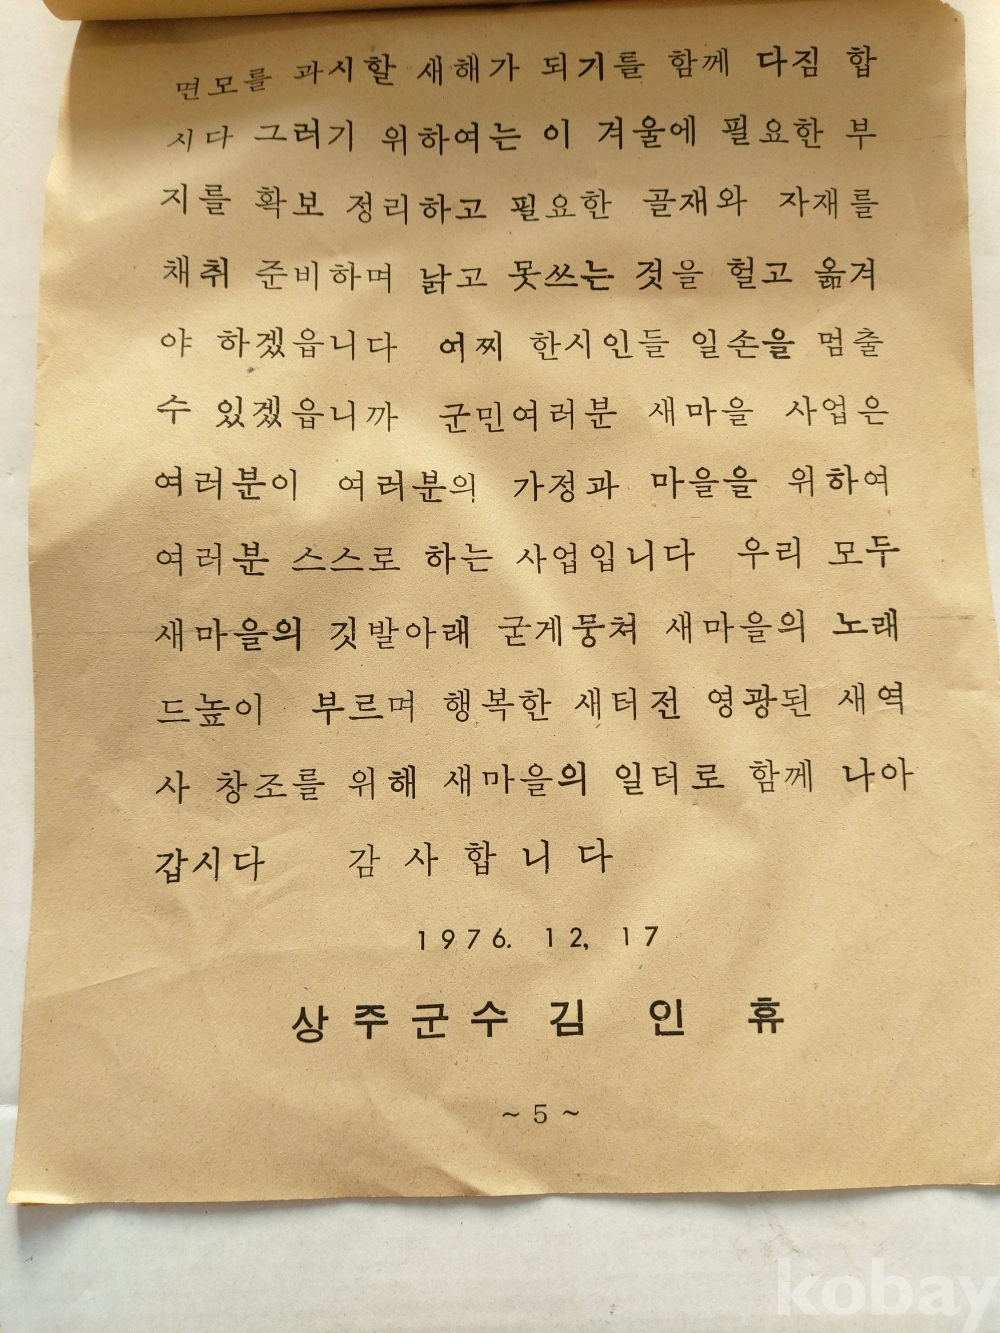 면모를 과시할 새해가 되기를 함께 다짐 합
시다 그러기 위하여는 이 겨울에 필요한 부
지를 확보 정리하고 필요한 골재와 자재를
채취 준비하며 낡고 못쓰는 것을 헐고 옮겨
야 하겠읍니다 어찌 한시인들 일손을 멈출
수 있겠읍니까 군민여러분 새마을 사업은
여러분이 여러분의 가정과 마을을 위하여
여러분 스스로 하는 사업입니다 우리 모두
새마을의 깃발아래 굳게뭉쳐 새마을의 노래
드높이 부르며 행복한 새터전 영광된 새역
사 창조를 위해 새마을의 일터로 함께 나아
갑시다 감 사 합 니 다
1976. 12, 17
상 주 군 수 김 인 휴
~ 5 ~
kobay